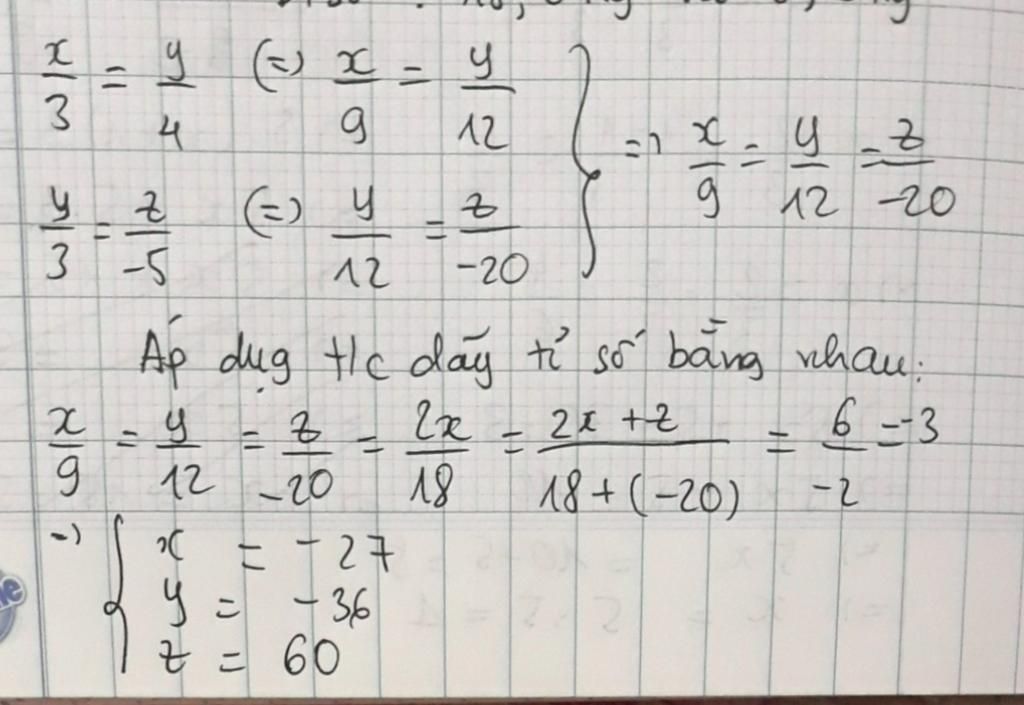 x/3 = y/4 (=) x/9 = y/12
y/3 = z/-5 (=) y/12 = z/-20
=) x/9 = y/12 = z/-20
Áp dụg t/c dãy tỉ số bằng nhau:
x/9 = y/12 = z/-20 = 2x/18 = 2x + z/18 + (-20) = 6/-2 = -3
=) { x = -27
y = -36
z = 60